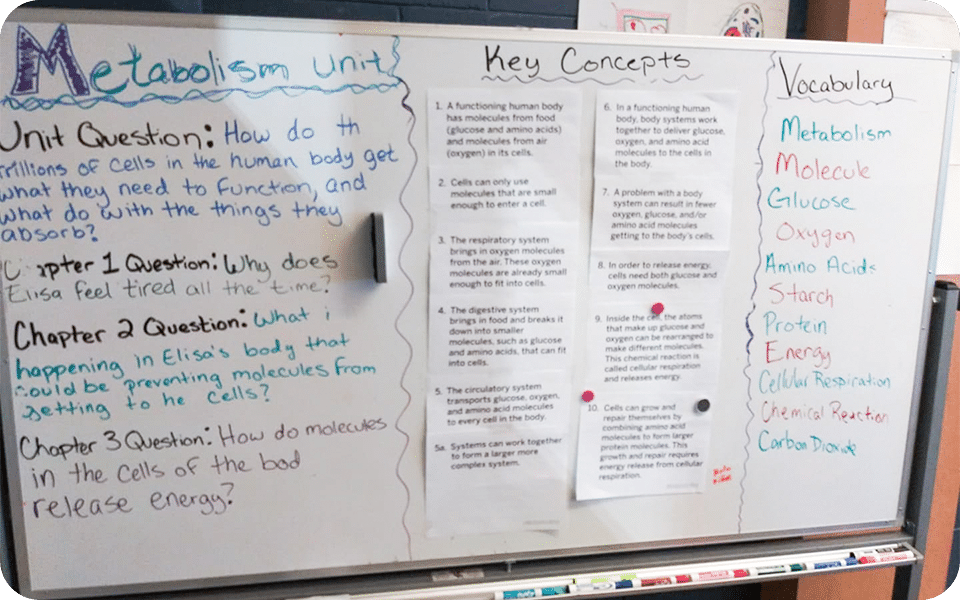 Metabolism Unit
Unit Question: How do th
trillions of cells in the human body get
what they need to function, and
what do with the things they
absorb?
C apter 1 Question: Why does
Elisa feel tired all the time?
Chapter 2 Question: What i
happening in Elisa's body that
could be preventing molecules from
getting to he cells?
Chapter 3 Question: How do molecules
in the cells of the bod
release energy?
Key Concepts
1. A functioning human body
has molecules from food
(glucose and amino acids)
and molecules from air
(oxygen) in its cells.
2. Cells can only use
molecules that are small
enough to enter a cell.
3. The respiratory system
brings in oxygen molecules
from the air. These oxygen
molecules are already small
enough to fit into cells.
4. The digestive system
brings in food and breaks it
down into smaller
molecules, such as glucose
and amino acids, that can fit
into cells.
5. The circulatory system
transports glucose, oxygen,
and amino acid molecules
to every cell in the body.
5a. Systems can work together
to form a larger more
complex system.
6. In a functioning human
body, body systems work
together to deliver glucose,
oxygen, and amino acid
molecules to the cells in
the body.
7. A problem with a body
system can result in fewer
oxygen, glucose, and/or
amino acid molecules
getting to the body's cells.
8. In order to release energy,
cells need both glucose and
oxygen molecules.
9. Inside the cell, the atoms
that make up glucose and
oxygen can be rearranged to
make different molecules.
This chemical reaction is
called cellular respiration
and releases energy.
10. Cells can grow and
repair themselves by
combining amino acid
molecules to form larger
protein molecules. This
growth and repair requires
energy release from cellular
respiration.
Vocabulary
Metabolism
Molecule
Glucose
Oxygen
Amino Acids
Starch
Protein
Energy
Cellular Respiration
Chemical Reaction
Carbon Dioxide